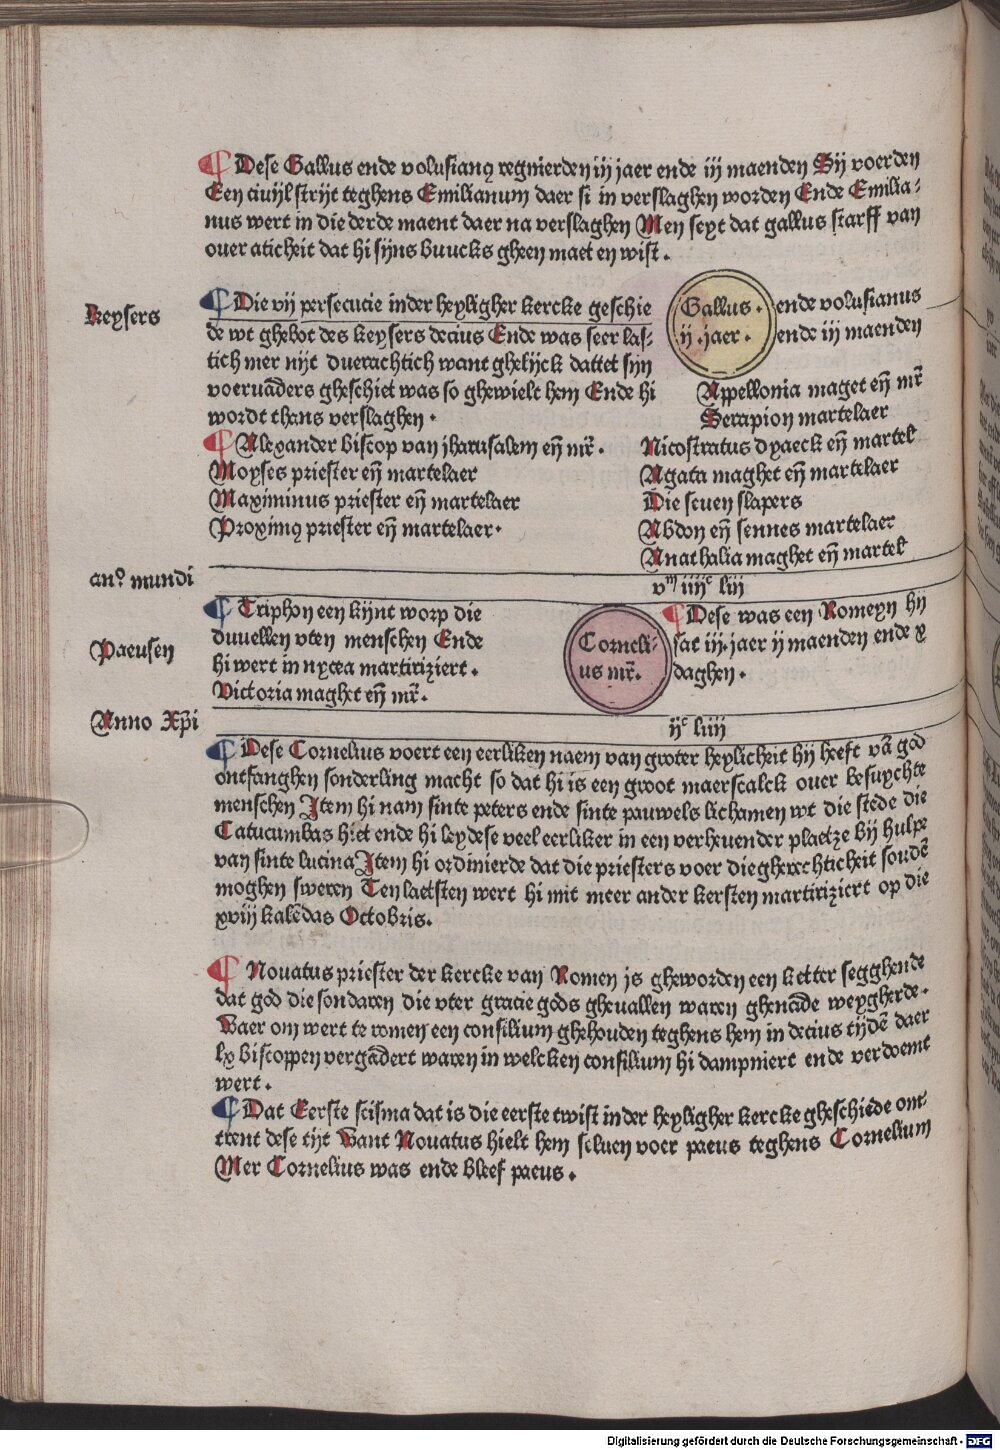 ¶ Dese Gallus ende volusianꝯ regnierden iij jaer ende iij maenden Sij voerden
Een ciuijl strijt teghens Emilianum daer si in verslaghen worden Ende Emilia-
nus wert in die derde maent daer na verslaghen Men seyt dat gallus starff van
ouer aticheit dat hi sijns buucks gheen maet en wist.
keysers
¶ Die vij persecucie inder heyligher kercke geschie
de wt ghebot des keysers decius Ende was seer las-
tich mer nijt duerachtich want ghelijck dattet sijn
voeruāders gheschiet was so ghewielt hem Ende hi
wordt thans verslaghen.
Gallus. ende volusianus
ij .jaer. ende iij maenden
Appellonia maget eñ mr̄
Serapion martelaer
¶ Alexander biscop van jharusalem eñ mr̄.
Moyses priester eñ martelaer
Maximinus priester eñ martelaer
Proximꝯ priester eñ martelaer.
Nicostratus dyaeck eñ martel̄
Agata maghet eñ martelaer
Die seuen slapers
Abdon eñ sennes martelaer
Anathalia maghet eñ martel̄
an? mundi
vᵐ iiijᶜ liij
Paeusen
¶ Triphon een kijnt worp die
duuellen vten menschen Ende
hi wert in nycea martiriziert.
Victoria maghet eñ mr̄.
Corneli-
us mr̄.
¶ Dese was een Romeyn hij
sat iij.jaer ij maenden ende x
daghen.
Anno Xp̄i
ijᶜ liiij
¶ Dese Cornelius voert een eerliken naem van groter heylicheit hij heeft vā god
ontfanghen sonderling macht so dat hi is een groot maerscalck ouer besuychte
menschen Item hi nam sinte peters ende sinte pauwels lichamen wt die stede die
Catucumbas hiet ende hi leydese veel eerliker in een verheuender plaetze bij hulpe
van sinte lucina Item hi ordinierde dat die priesters voer die gherechticheit soudē
moghen sweren Ten laetsten wert hi mit meer ander kersten martiriziert op die
xviij kalēdas Octobris.
¶ Nouatus priester der kercke van Romen js gheworden een ketter segghende
dat god die sondaren die vter gracie gods gheuallen waren ghenāde weygherde.
Waer om wert te romen een consilium ghehouden teghens hem in decius tijdē daer
lx biscoppen vergādert waren in welcken consilium hi dampniert ende verdoemt
wert.
¶ Dat Eerste scisma dat is die eerste twist inder heyligher kercke gheschiede om-
trent dese tijt Want Nouatus hielt hem seluen voer paeus teghens Cornelium
Mer Cornelius was ende bleef paeus.
Digitalisierung gefördert durch die Deutsche Forschungsgemeinschaft - DFG